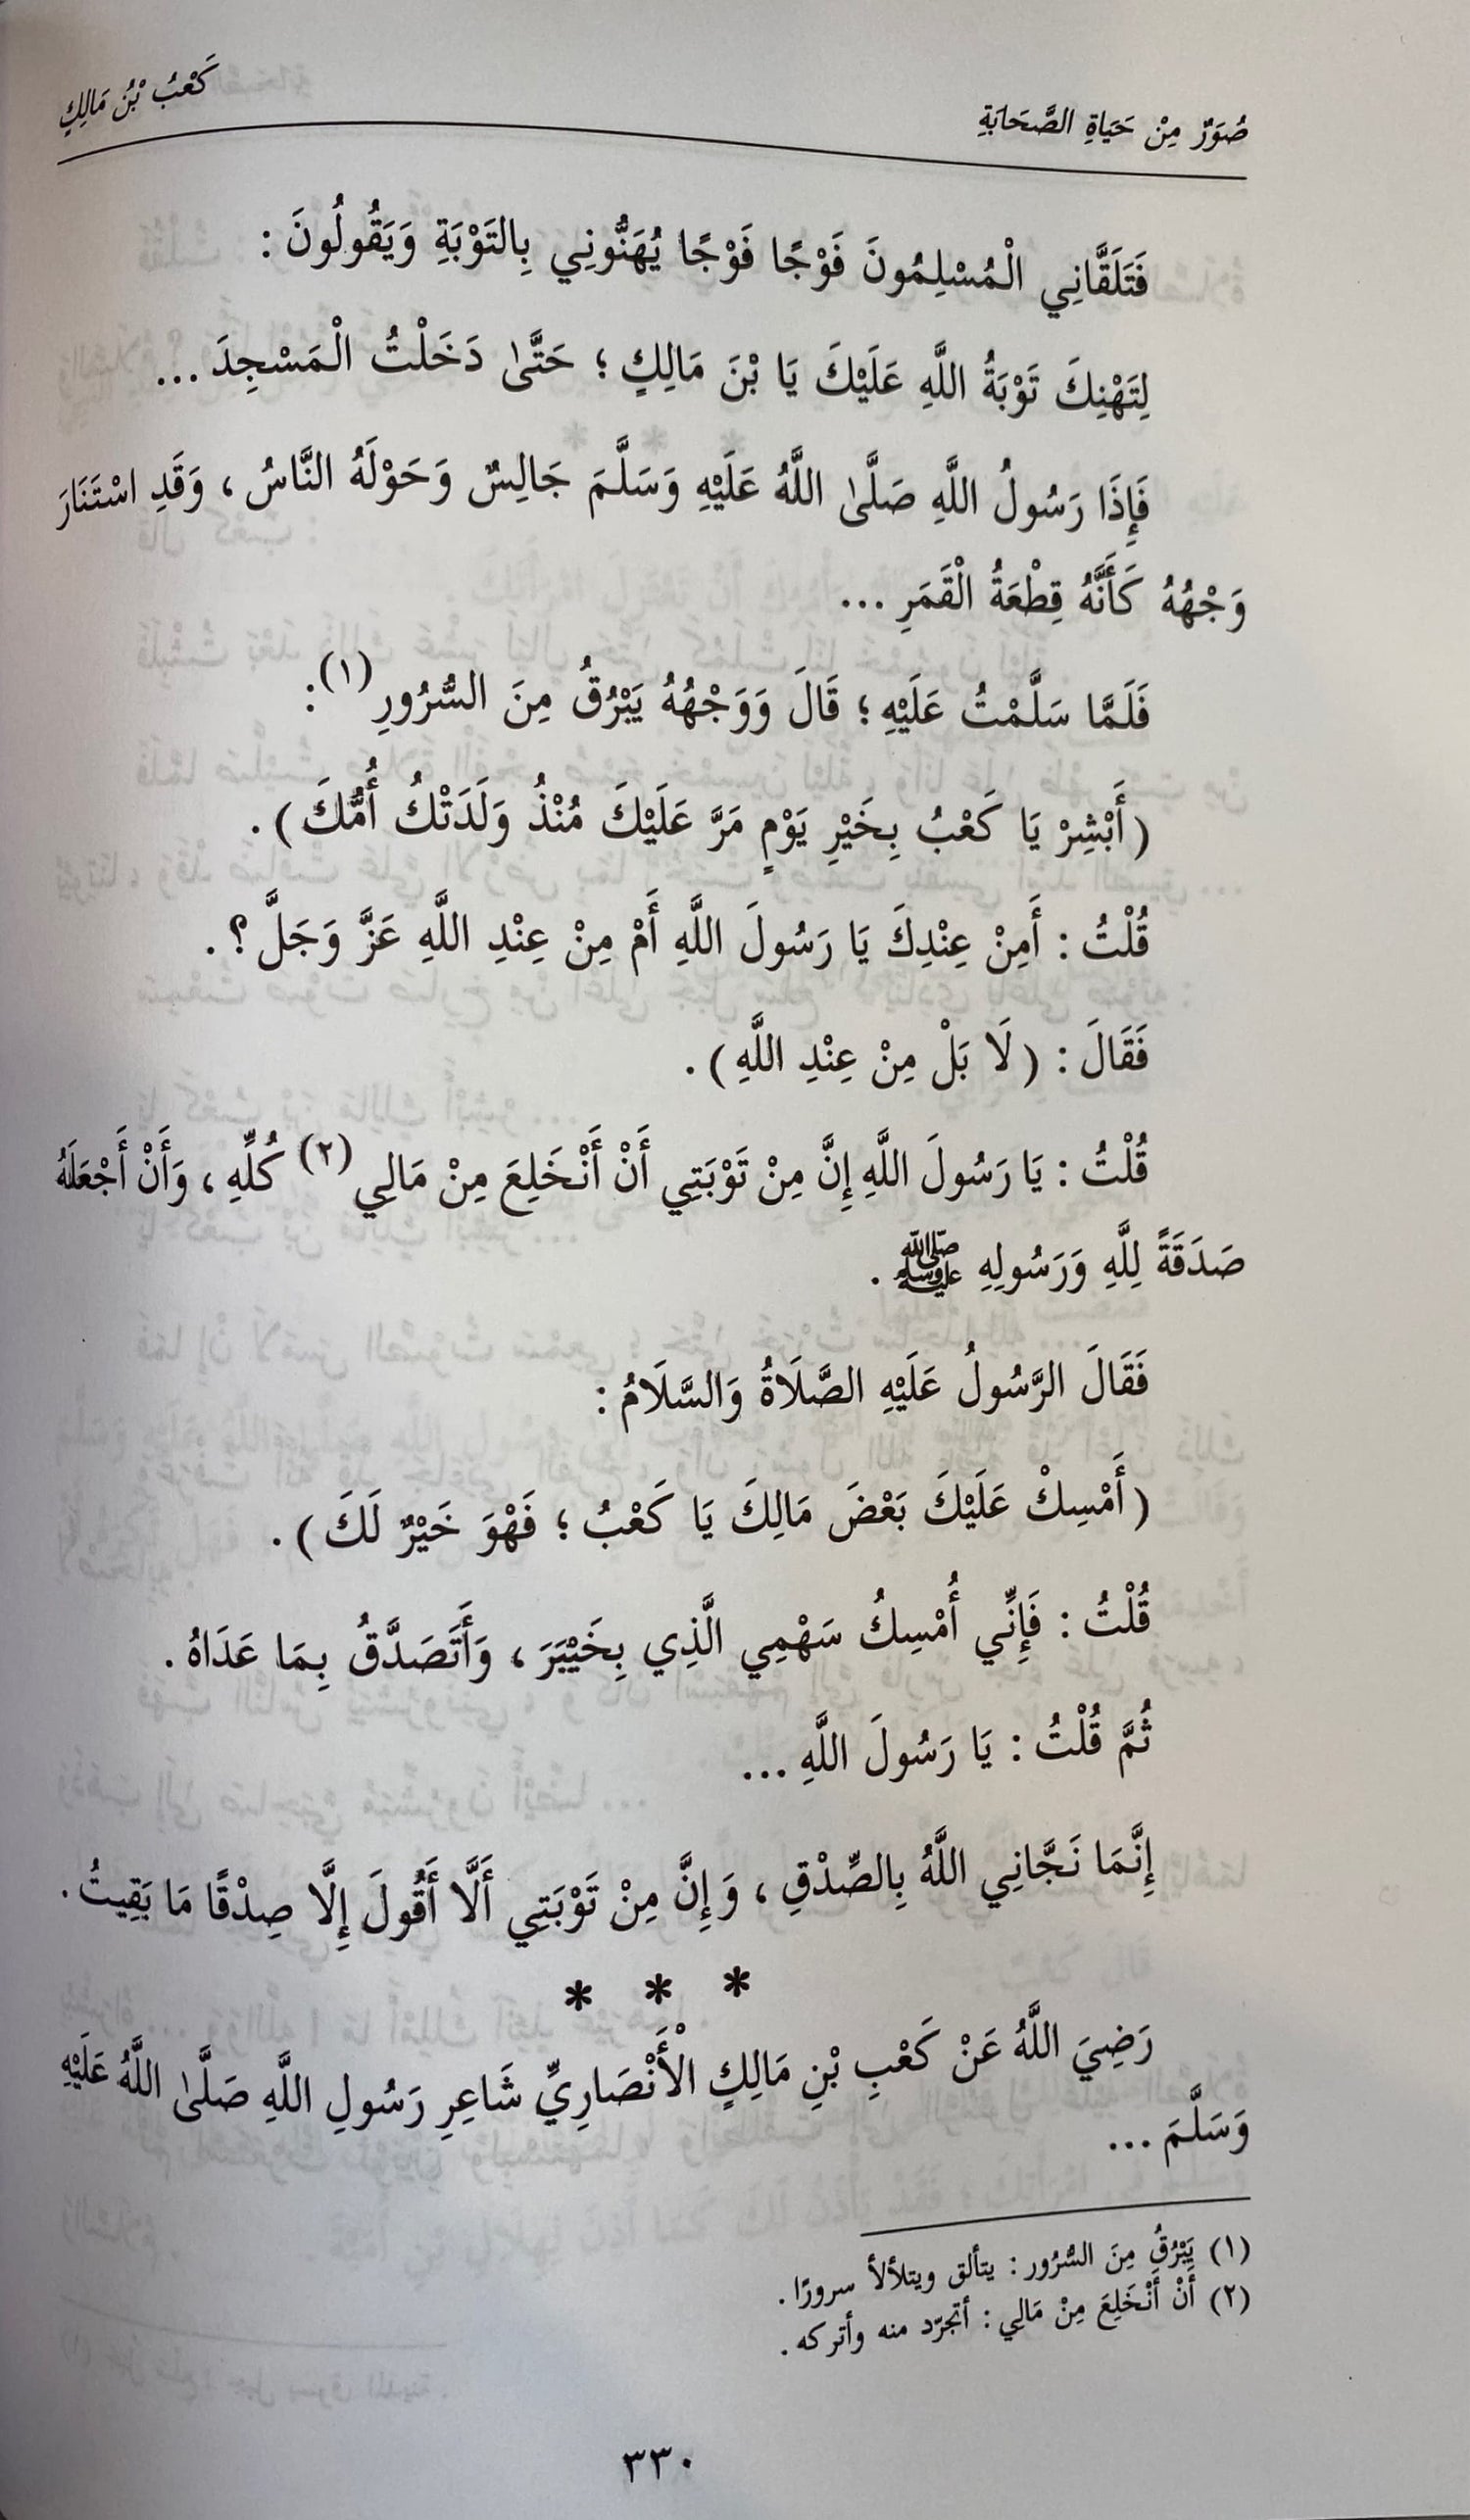 صُوَرٌ مِنْ حَيَاةِ الصَّحَابَةِ
كَعْبُ بْنُ مَالِكٍ
فَتَلَقَّانِي الْمُسْلِمُونَ فَوْجًا فَوْجًا يُهَنُّونِي بِالتَوْبَةِ وَيَقُولُونَ :
لِتَهْنِكَ تَوْبَةُ اللَّهِ عَلَيْكَ يَا بْنَ مَالِكٍ ؛ حَتَّىٰ دَخَلْتُ الْمَسْجِدَ ...
فَإِذَا رَسُولُ اللَّهِ صَلَّىٰ اللَّهُ عَلَيْهِ وَسَلَّمَ جَالِسٌ وَحَوْلَهُ النَّاسُ ، وَقَدِ اسْتَنَارَ
وَجْهُهُ كَأَنَّهُ قِطْعَةُ الْقَمَرِ ...
فَلَمَّا سَلَّمْتُ عَلَيْهِ ؛ قَالَ وَوَجْهُهُ يَبْرُقُ مِنَ السُّرُورِ (١) :
( أَبْشِرْ يَا كَعْبُ بِخَيْرِ يَوْمٍ مَرَّ عَلَيْكَ مُنْذُ وَلَدَتْكُ أُمُّكَ ) .
قُلْتُ : أَمِنْ عِنْدِكَ يَا رَسُولَ اللَّهِ أَمْ مِنْ عِنْدِ اللَّهِ عَزَّ وَجَلَّ ؟ .
فَقَالَ : ( لَا بَلْ مِنْ عِنْدِ اللَّهِ ) .
قُلْتُ : يَا رَسُولَ اللَّهِ إِنَّ مِنْ تَوْبَتِي أَنْ أَنْخَلِعَ مِنْ مَالِي (٢) كُلِّهِ ، وَأَنْ أَجْعَلَهُ
صَدَقَةً لِلَّهِ وَرَسُولِهِ ﷺ .
فَقَالَ الرَّسُولُ عَلَيْهِ الصَّلَاةُ وَالسَّلَامُ :
( أَمْسِكْ عَلَيْكَ بَعْضَ مَالِكَ يَا كَعْبُ ؛ فَهْوَ خَيْرٌ لَكَ ) .
قُلْتُ : فَإِنِّي أُمْسِكُ سَهْمِي الَّذِي بِخَيْبَرَ ، وَأَتَصَدَّقُ بِمَا عَدَاهُ .
ثُمَّ قُلْتُ : يَا رَسُولَ اللَّهِ ...
إِنَّمَا نَجَّانِي اللَّهُ بِالصِّدْقِ ، وَإِنَّ مِنْ تَوْبَتِي أَلَّا أَقُولَ إِلَّا صِدْقًا مَا بَقِيتُ .
* * *
رَضِيَ اللَّهُ عَنْ كَعْبِ بْنِ مَالِكٍ الْأَنْصَارِيِّ شَاعِرِ رَسُولِ اللَّهِ صَلَّىٰ اللَّهُ عَلَيْهِ
وَسَلَّمَ ...
(١) يَبْرُقُ مِنَ السُّرُور : يتألق ويتلألأ سرورًا .
(٢) أَنْ أَنْخَلِعَ مِنْ مَالِي : أتجرّد منه وأتركه .
٣٣٠